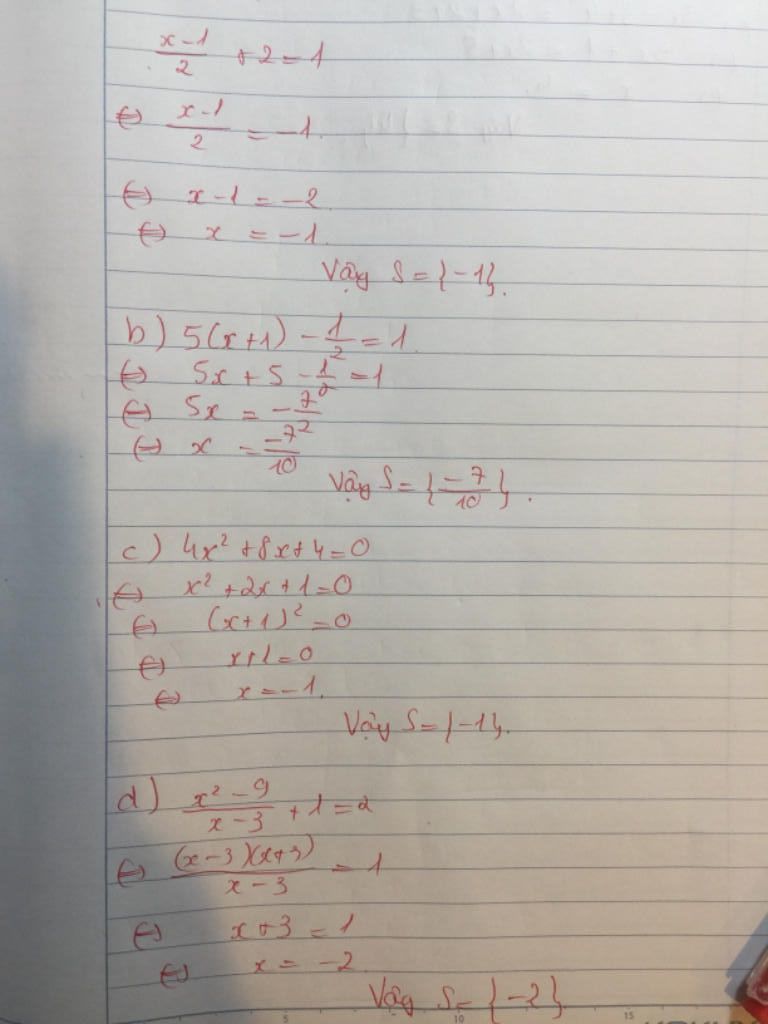 x-1/2 + 2 = 1
⇔ x-1/2 = -1.
⇔ x-1 = -2
⇔ x = -1.
Vậy S = {-1}.
b) 5(x+1) - 1/2 = 1
⇔ 5x + 5 - 1/2 = 1
⇔ 5x = -7/2
⇔ x = -7/10
Vậy S = {-7/10}.
c) 4x² + 8x + 4 = 0
⇔ x² + 2x + 1 = 0
⇔ (x+1)² = 0
⇔ x+1 = 0
⇔ x = -1.
Vậy S = {-1}.
d) x² - 9/x - 3 + 1 = 2
⇔ (x-3)(x+3)/x - 3 = 1
⇔ x + 3 = 1
⇔ x = -2
Vậy S = {-2}
5 10 15